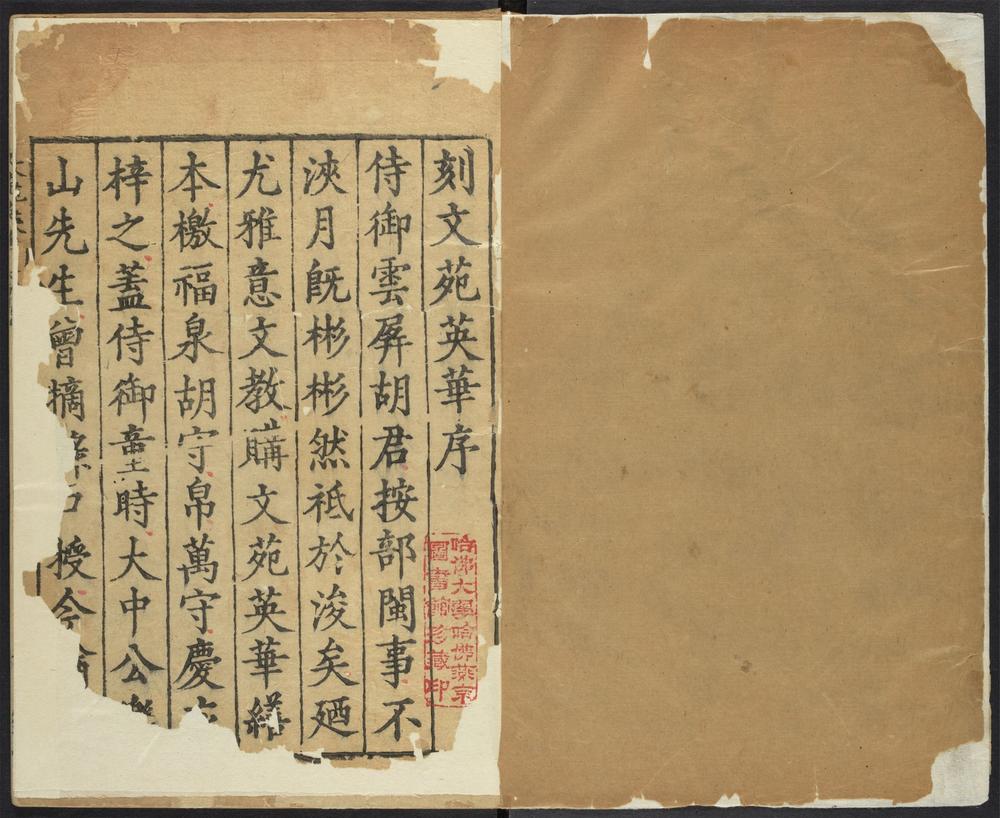 刻文苑英華序
侍御雲屏胡君按部閩事不
浹月旣彬彬然祗於浚矣廼
尤雅意文教購文苑英華繕
本檄福泉胡守帛萬守慶
梓之蓋侍御童時大中公
山先生曾摘 授今
哈佛大學哈佛燕京
圖書館珍藏印